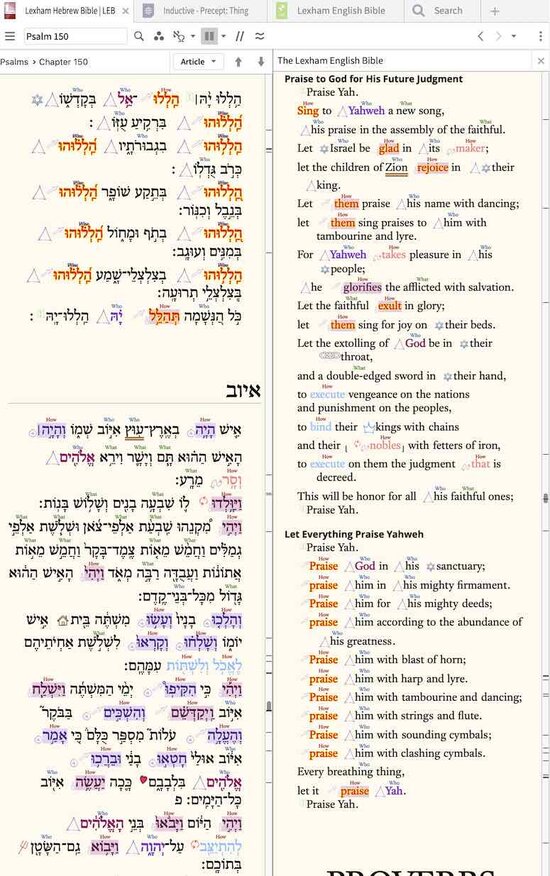 Lexham Hebrew Bible | LEB
Inductive - Precept: Thing
Lexham English Bible
Search
Psalm 150
Psalms › Chapter 150
Article
הַ֥לְלוּ יָ֨הּ ׀ הַֽלְלוּ־אֵ֥ל בְּקָדְשׁ֑וֹ
הַֽ֝לְל֗וּהוּ בִּרְקִ֥יעַ עֻזּֽוֹ׃
הַֽלְל֥וּהוּ בִגְבוּרֹתָ֑יו הַֽ֝לְל֗וּהוּ
כְּרֹ֣ב גֻּדְלֽוֹ׃
הַֽ֭לְלוּהוּ בְּתֵ֣קַע שׁוֹפָ֑ר הַֽ֝לְל֗וּהוּ
בְּנֵ֣בֶל וְכִנּֽוֹר׃
הַֽ֭לְלוּהוּ בְּתֹ֣ף וּמָח֑וֹל הַֽ֝לְל֗וּהוּ
בְּמִנִּ֥ים וְעוּגָֽב׃
הַֽלְל֥וּהוּ בְצִלְצְלֵי־שָׁ֑מַע הַֽ֝לְל֗וּהוּ
בְּצִלְצְלֵ֥י תְרוּעָֽה׃
כֹּ֣ל הַ֭נְּשָׁמָה תְּהַלֵּ֥ל יָ֗הּ הַֽלְלוּ־יָֽהּ׃
איוב
אִ֛ישׁ הָיָ֥ה בְאֶֽרֶץ־ע֖וּץ אִיּ֣וֹב שְׁמ֑וֹ וְהָיָ֣ה ׀
הָאִ֣ישׁ הַה֗וּא תָּ֧ם וְיָשָׁ֛ר וִירֵ֥א אֱלֹהִ֖ים
וְסָ֥ר מֵרָֽע׃
וַיִּוָּ֥לְדוּ ל֛וֹ שִׁבְעָ֥ה בָנִ֖ים וְשָׁל֥וֹשׁ בָּנֽוֹת׃
וַיְהִ֣י מִ֠קְנֵהוּ שִֽׁבְעַ֨ת אַלְפֵי־צֹ֜אן וּשְׁלֹ֧שֶׁת אַלְפֵ֣י
גְמַלִּ֗ים וַחֲמֵ֨שׁ מֵא֤וֹת צֶֽמֶד־בָּקָר֙ וַחֲמֵ֣שׁ מֵא֣וֹת
אֲתוֹנ֔וֹת וַעֲבֻדָּ֖ה רַבָּ֣ה מְאֹ֑ד וַיְהִי֙ הָאִ֣ישׁ הַה֔וּא
גָּד֖וֹל מִכָּל־בְּנֵי־קֶֽדֶם׃
וְהָלְכ֤וּ בָנָיו֙ וְעָשׂ֣וּ מִשְׁתֶּ֔ה בֵּ֖ית אִ֣ישׁ
יוֹמ֑וֹ וְשָׁלְח֗וּ וְקָרְאוּ֙ לִשְׁלֹ֣שֶׁת אַחְיֹתֵיהֶ֔ם
לֶאֱכֹ֥ל וְלִשְׁתּ֖וֹת עִמָּהֶֽם׃
וַיְהִ֡י כִּ֣י הִקִּיפֽוּ֩ יְמֵ֨י הַמִּשְׁתֶּ֜ה וַיִּשְׁלַ֧ח
אִיּ֣וֹב וַֽיְקַדְּשֵׁ֗ם וְהִשְׁכִּ֣ים בַּבֹּקֶר֮
וְהֶעֱלָ֣ה עֹלוֹת֮ מִסְפַּ֣ר כֻּלָּם֒ כִּ֚י אָמַ֣ר
אִיּ֔וֹב אוּלַי֙ חָטְא֣וּ בָנַ֔י וּבֵרֲכ֥וּ
אֱלֹהִ֖ים בִּלְבָבָ֑ם כָּ֛כָה יַעֲשֶׂ֥ה אִיּ֖וֹב
כָּל־הַיָּמִֽים׃ פ
וַיְהִ֣י הַיּ֔וֹם וַיָּבֹ֙אוּ֙ בְּנֵ֣י הָאֱלֹהִ֔ים
לְהִתְיַצֵּ֖ב עַל־יְהוָ֑ה וַיָּב֥וֹא גַֽם־הַשָּׂטָ֖ן
בְּתוֹכָֽם׃
The Lexham English Bible
Praise to God for His Future Judgment
Praise Yah.
Sing to Yahweh a new song,
his praise in the assembly of the faithful.
Let Israel be glad in its maker;
let the children of Zion rejoice in their
king.
Let them praise his name with dancing;
let them sing praises to him with
tambourine and lyre.
For Yahweh takes pleasure in his
people;
he glorifies the afflicted with salvation.
Let the faithful exult in glory;
let them sing for joy on their beds.
Let the extolling of God be in their
throat,
and a double-edged sword in their hand,
to execute vengeance on the nations
and punishment on the peoples,
to bind their kings with chains
and their nobles with fetters of iron,
to execute on them the judgment that is
decreed.
This will be honor for all his faithful ones;
Praise Yah.
Let Everything Praise Yahweh
Praise Yah.
Praise God in his sanctuary;
praise him in his mighty firmament.
Praise him for his mighty deeds;
praise him according to the abundance of
his greatness.
Praise him with blast of horn;
praise him with harp and lyre.
Praise him with tambourine and dancing;
praise him with strings and flute.
Praise him with sounding cymbals;
praise him with clashing cymbals.
Every breathing thing,
let it praise Yah.
Praise Yah.
PROVERBS